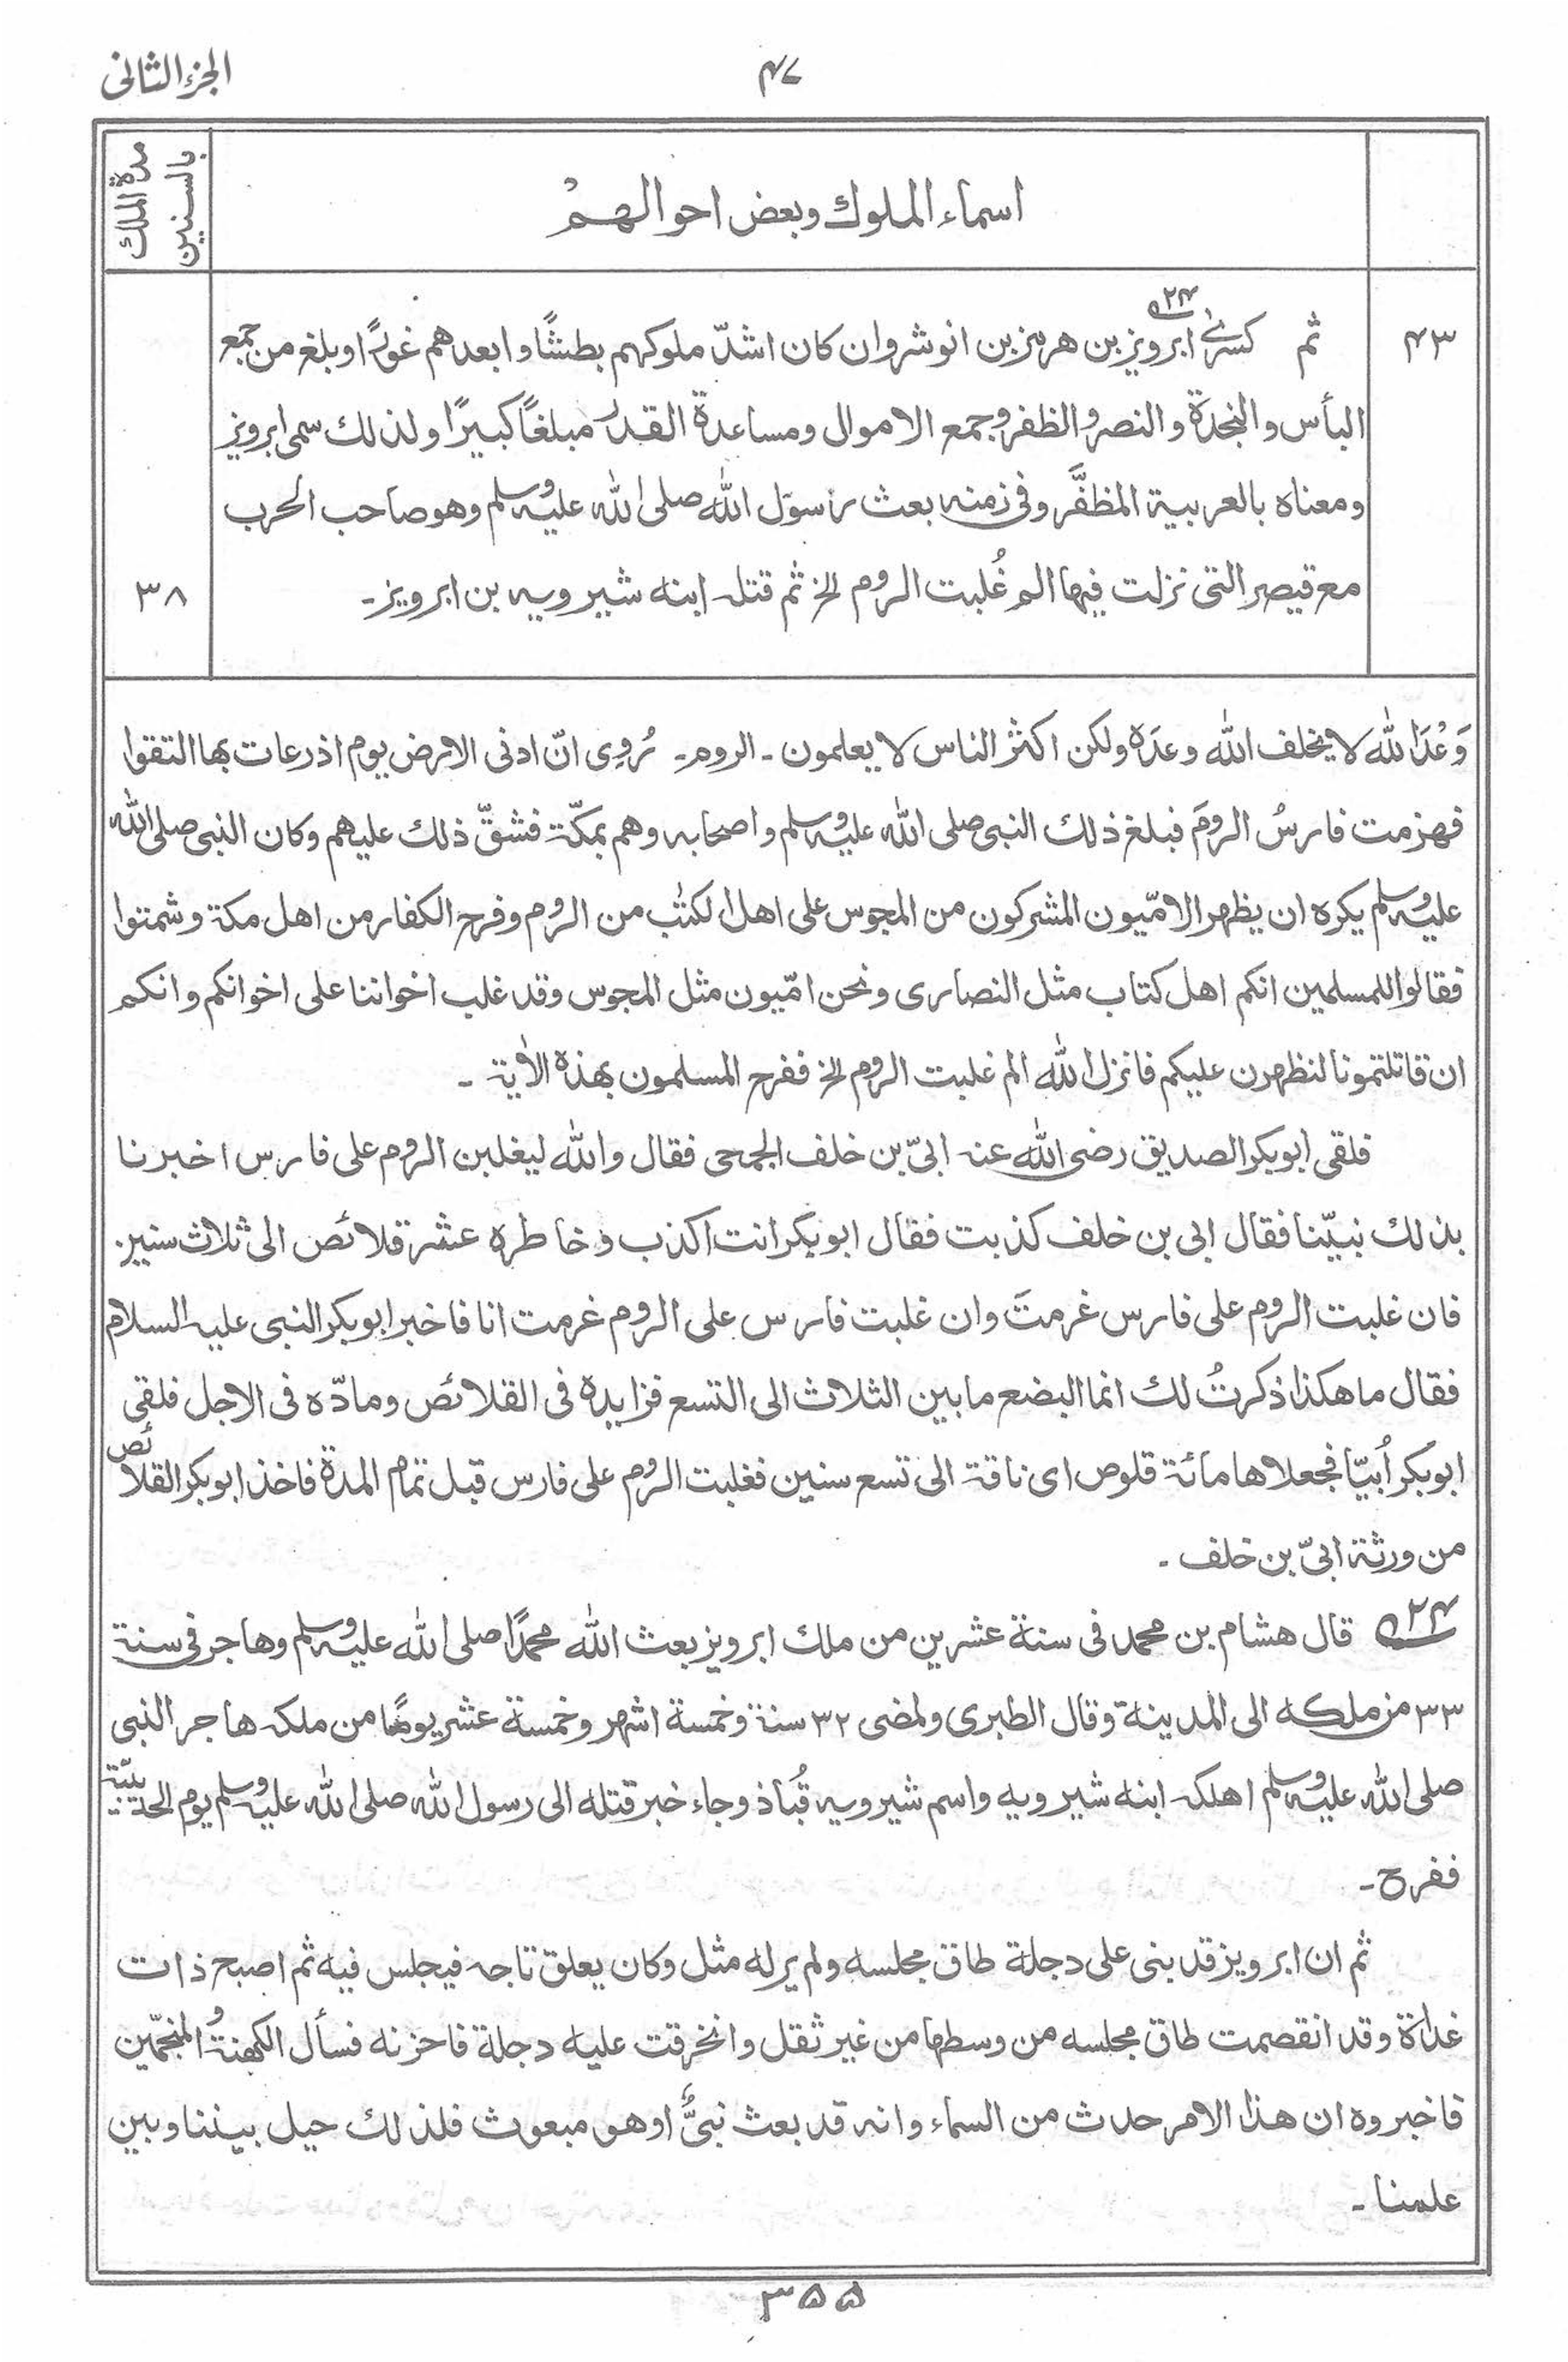 الجزء الثانی
۴۷
اسماء الملوك وبعض احوالهمْ
مدة الملك بالسنين
۴۳
ثم كسرٰى ابرويز بن هرمز بن انوشروان كان اشدّ ملوكهم بطشًا وابعدهم غورًا وبلغ من جمع
البأس والنجدة والنصر والظفر وجمع الاموال ومساعدة القدر مبلغًا كبيرًا ولذلك سمى ابرويز
ومعناه بالعربية المظفَّر وفى زمنه بعث رسول الله صلى الله عليه وسلم وهو صاحب الحرب
مع قيصر التى نزلت فيها الم غُلبت الروم الخ ثم قتله ابنه شيرويه بن ابرويز۔
۳۸
وَعْدَ الله لا يخلف الله وعدَه ولكن اكثر الناس لا يعلمون ۔ الروم۔ رُوِى انّ ادنى الارض يوم اذرعات بها التقوا
فهزمت فارسُ الرومَ فبلغ ذلك النبى صلى الله عليه وسلم واصحابه وهم بمكّة فشقّ ذلك عليهم وكان النبى صلى الله
عليه وسلم يكره ان يظهر الامّيون المشركون من المجوس على اهل الكتٰب من الروم وفرح الكفار من اهل مكة وشمتوا
فقالوا للمسلمين انكم اهل كتاب مثل النصارى ونحن امّيون مثل المجوس وقد غلب اخواننا على اخوانكم وانكم
ان قاتلتمونا لنظهرن عليكم فانزل الله الم غلبت الروم الخ ففرح المسلمون بهذه الاٰية ۔
فلقى ابوبكر الصديق رضى الله عنه ابىّ بن خلف الجمحى فقال والله ليغلبن الروم على فارس اخبرنا
بذلك نبيّنا فقال ابى بن خلف كذبت فقال ابوبكر انت اكذب وخاطره عشر قلائص الى ثلاث سنين
فان غلبت الروم على فارس غرمتَ وان غلبت فارس على الروم غرمت انا فاخبر ابوبكر النبى عليه السلام
فقال ما هكذا ذكرتُ لك انما البضع ما بين الثلاث الى التسع فزايده فى القلائص ومادّه فى الاجل فلقى
ابوبكر اُبيّا فجعلاها مائة قلوص اى ناقة الى تسع سنين فغلبت الروم على فارس قبل تمام المدة فاخذ ابوبكر القلائص
من ورثة ابىّ بن خلف ۔
۵۲۴ قال هشام بن محمد فى سنة عشرين من ملك ابرويز بعث الله محمدًا صلى الله عليه وسلم وهاجر فى سنة
۳۳ من ملكه الى المدينة وقال الطبرى ولمضى ۳۲ سنة وخمسة اشهر وخمسة عشر يومًا من ملكه هاجر النبى
صلى الله عليه وسلم اهلكه ابنه شيرويه واسم شيرويه قُباذ وجاء خبر قتله الى رسول الله صلى الله عليه وسلم يوم الحديبيّة
ففرح۔
ثم ان ابرويز قد بنى على دجلة طاق مجلسه ولم ير له مثل وكان يعلق تاجه فيجلس فيه ثم اصبح ذات
غداة وقد انقصمت طاق مجلسه من وسطها من غير ثقل وانخرقت عليه دجلة فاحزنه فسأل الكهنة والمنجّمين
فاخبروه ان هذا الامر حدث من السماء وانه قد بعث نبىٌّ او هو مبعوث فلذلك حيل بيننا وبين
علمنا ۔
۳۵۵